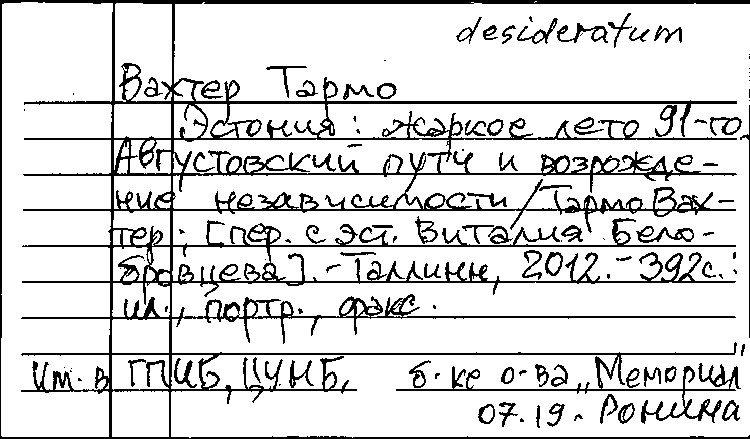 desideratum
Вахтер Тармо
Эстония: жаркое лето 91-го.
Августовский путч и возрожде-
ние независимости / Тармо Вах-
тер; [пер. с эст. Виталия Бело-
бровцева]. - Таллинн, 2012. - 392с.:
ил., портр., факс.
Им. в ГПИБ, ЦУНБ, б-ке о-ва „Мемориал"
07.19. Ронина